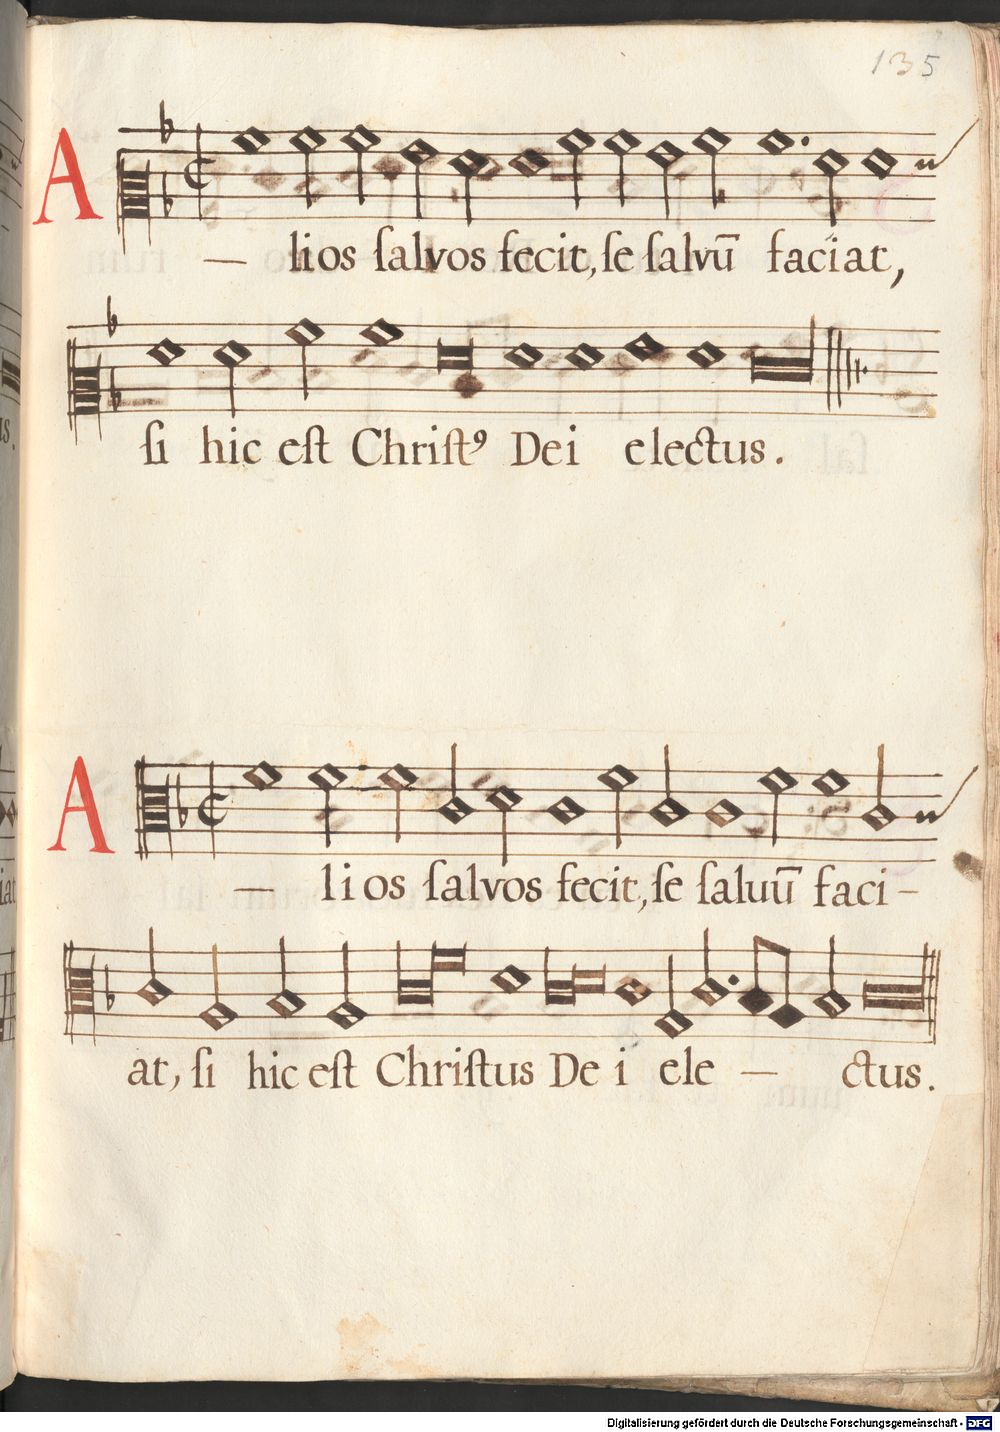 135
A — lios ſalvos fecit, ſe ſalvū faciat,
ſi hic eſt Chriſtꝰ Dei electus.
A — lios ſalvos fecit, ſe ſaluū faci-
at, ſi hic eſt Chriſtus Dei ele — ctus.
Digitalisierung gefördert durch die Deutsche Forschungsgemeinschaft - DFG